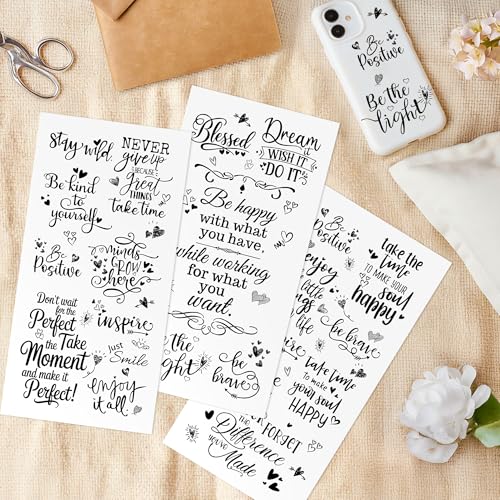 stay wild.
NEVER
give up
BECAUSE
Great
THINGS
take time
Be kind
to
yourself
Be
Positive
minds
GROW
here
Don't wait
for the
Perfect
the Take
Moment
and make it
Perfect!
inspire
just
Smile
enjoy
it all.
Blessed
Dream
WISH IT
DO IT
Be happy
with what
you have.
while working
for what
you
want.
the
light
be
brave
Be
Positive
take the
time
TO MAKE YOUR
soul
happy
enjoy
little
life
be
brave
Take time
to make
your soul
HAPPY
FORGET
the
Difference
you've
Made
Be
Positive
Be the
light